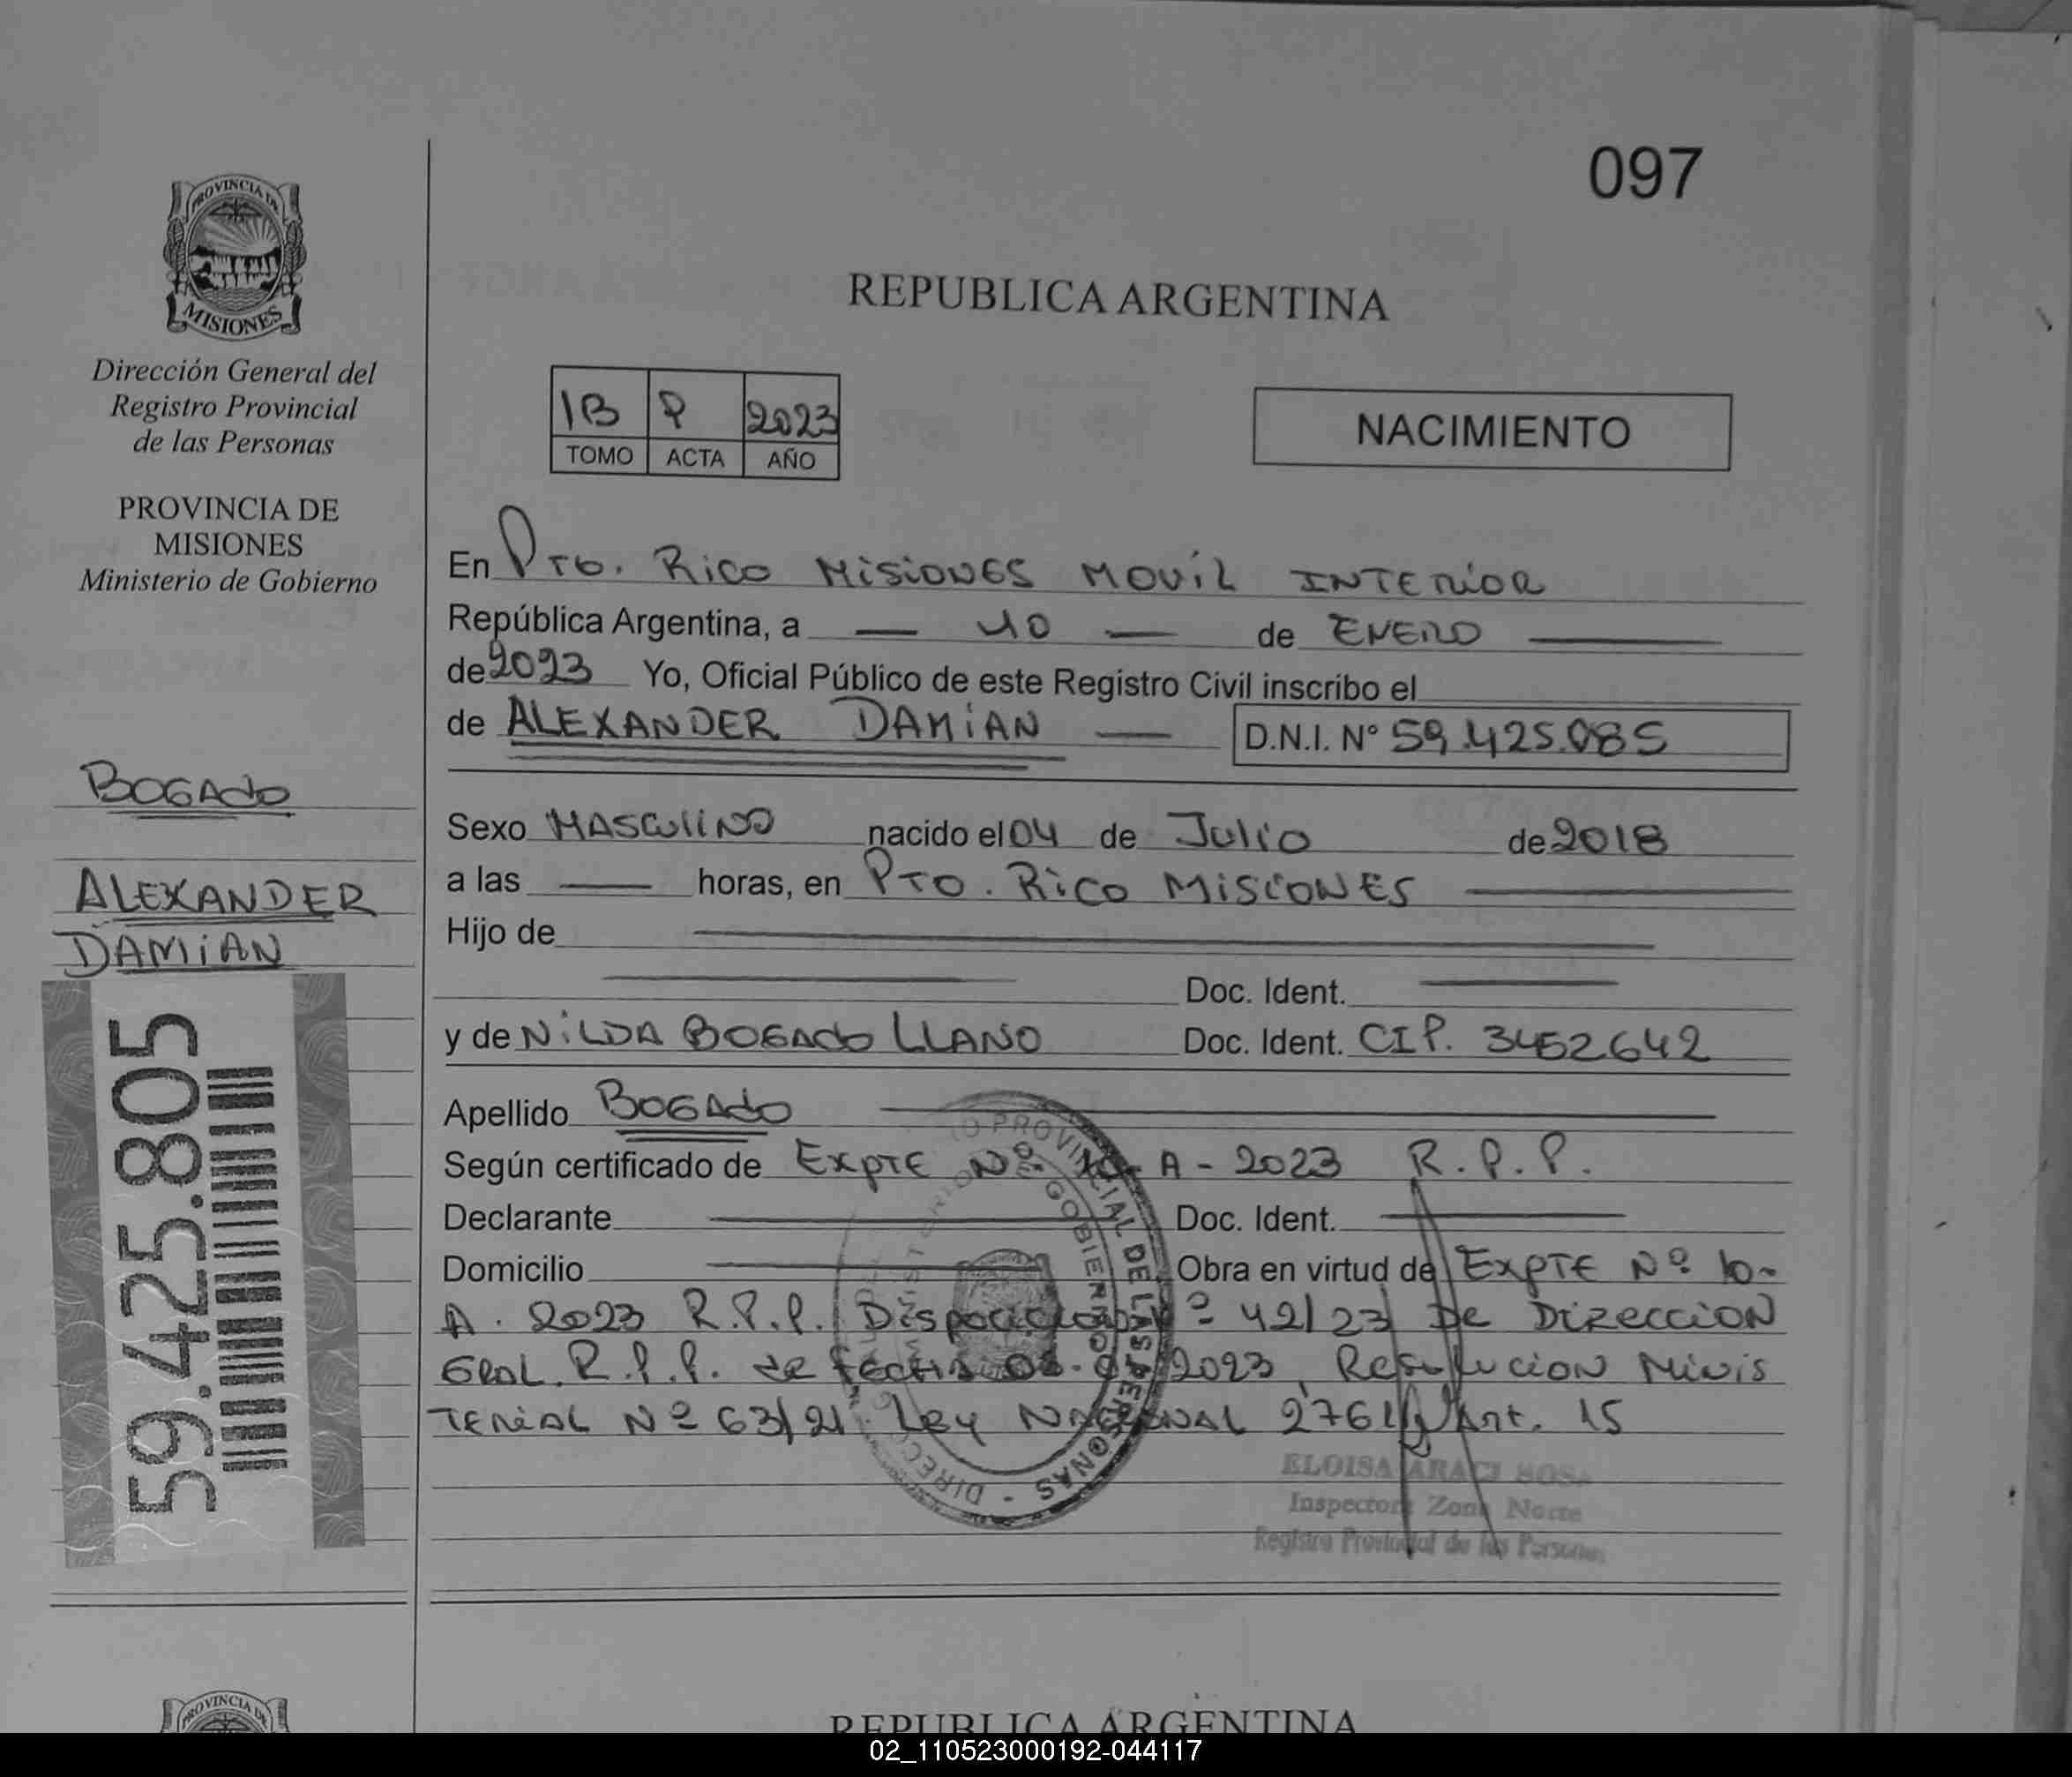 097
PROVINCIA DE
MISIONES
Dirección General del
Registro Provincial
de las Personas
PROVINCIA DE
MISIONES
Ministerio de Gobierno
BOGADO
ALEXANDER
DAMIAN
59.425.805
REPUBLICA ARGENTINA
1B P 2023
TOMO ACTA AÑO
NACIMIENTO
En Pto. Rico Misiones Movil Interior
República Argentina, a 10 de ENERO
de 2023 Yo, Oficial Público de este Registro Civil inscribo el
de ALEXANDER DAMIAN D.N.I. Nº 59.425.085
Sexo MASCULINO nacido el 04 de Julio de 2018
a las horas, en PTO. Rico MISIONES
Hijo de
Doc. Ident.
y de NILDA BOGADO LLANO Doc. Ident. CIP. 3452642
Apellido BOGADO
Según certificado de EXPTE Nº A - 2023 R.P.P.
Declarante Doc. Ident.
Domicilio Obra en virtud de EXPTE Nº 10-
A. 2023 R.P.P. Nº 42/23 De DIRECCION
GRAL. R.P.P. de fecha 2023, Resolucion Minis
TERIAL Nº 63/21. Ley NACIONAL Art. 15
DIRECC PROVINCIAL DE LAS PERSONAS
GOBIERNO
ELOISA ARACI SOSA
Inspectora Zona Norte
Registro Provincial de las Personas
PROVINCIA DE
REPUBLICA ARGENTINA
02_110523000192-044117